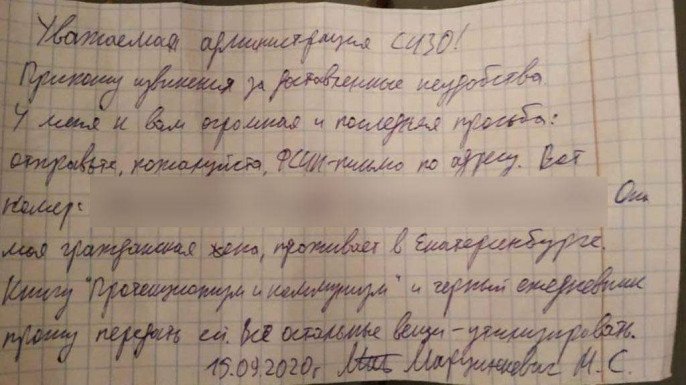 Уважаемая администрация СИЗО!
Приношу извинения за доставленные неудобства
У меня к вам огромная и последняя просьба:
отправьте, пожалуйста, ФСИН-письмо по адресу. Вот
номер: Она
моя гражданская жена, проживает в Екатеринбурге.
Книгу "Протекционизм и коммунизм" и черный ежедневник
прошу передать ей. Все остальные вещи - утилизировать.
15.09.2020г. Марцинкевич М.С.